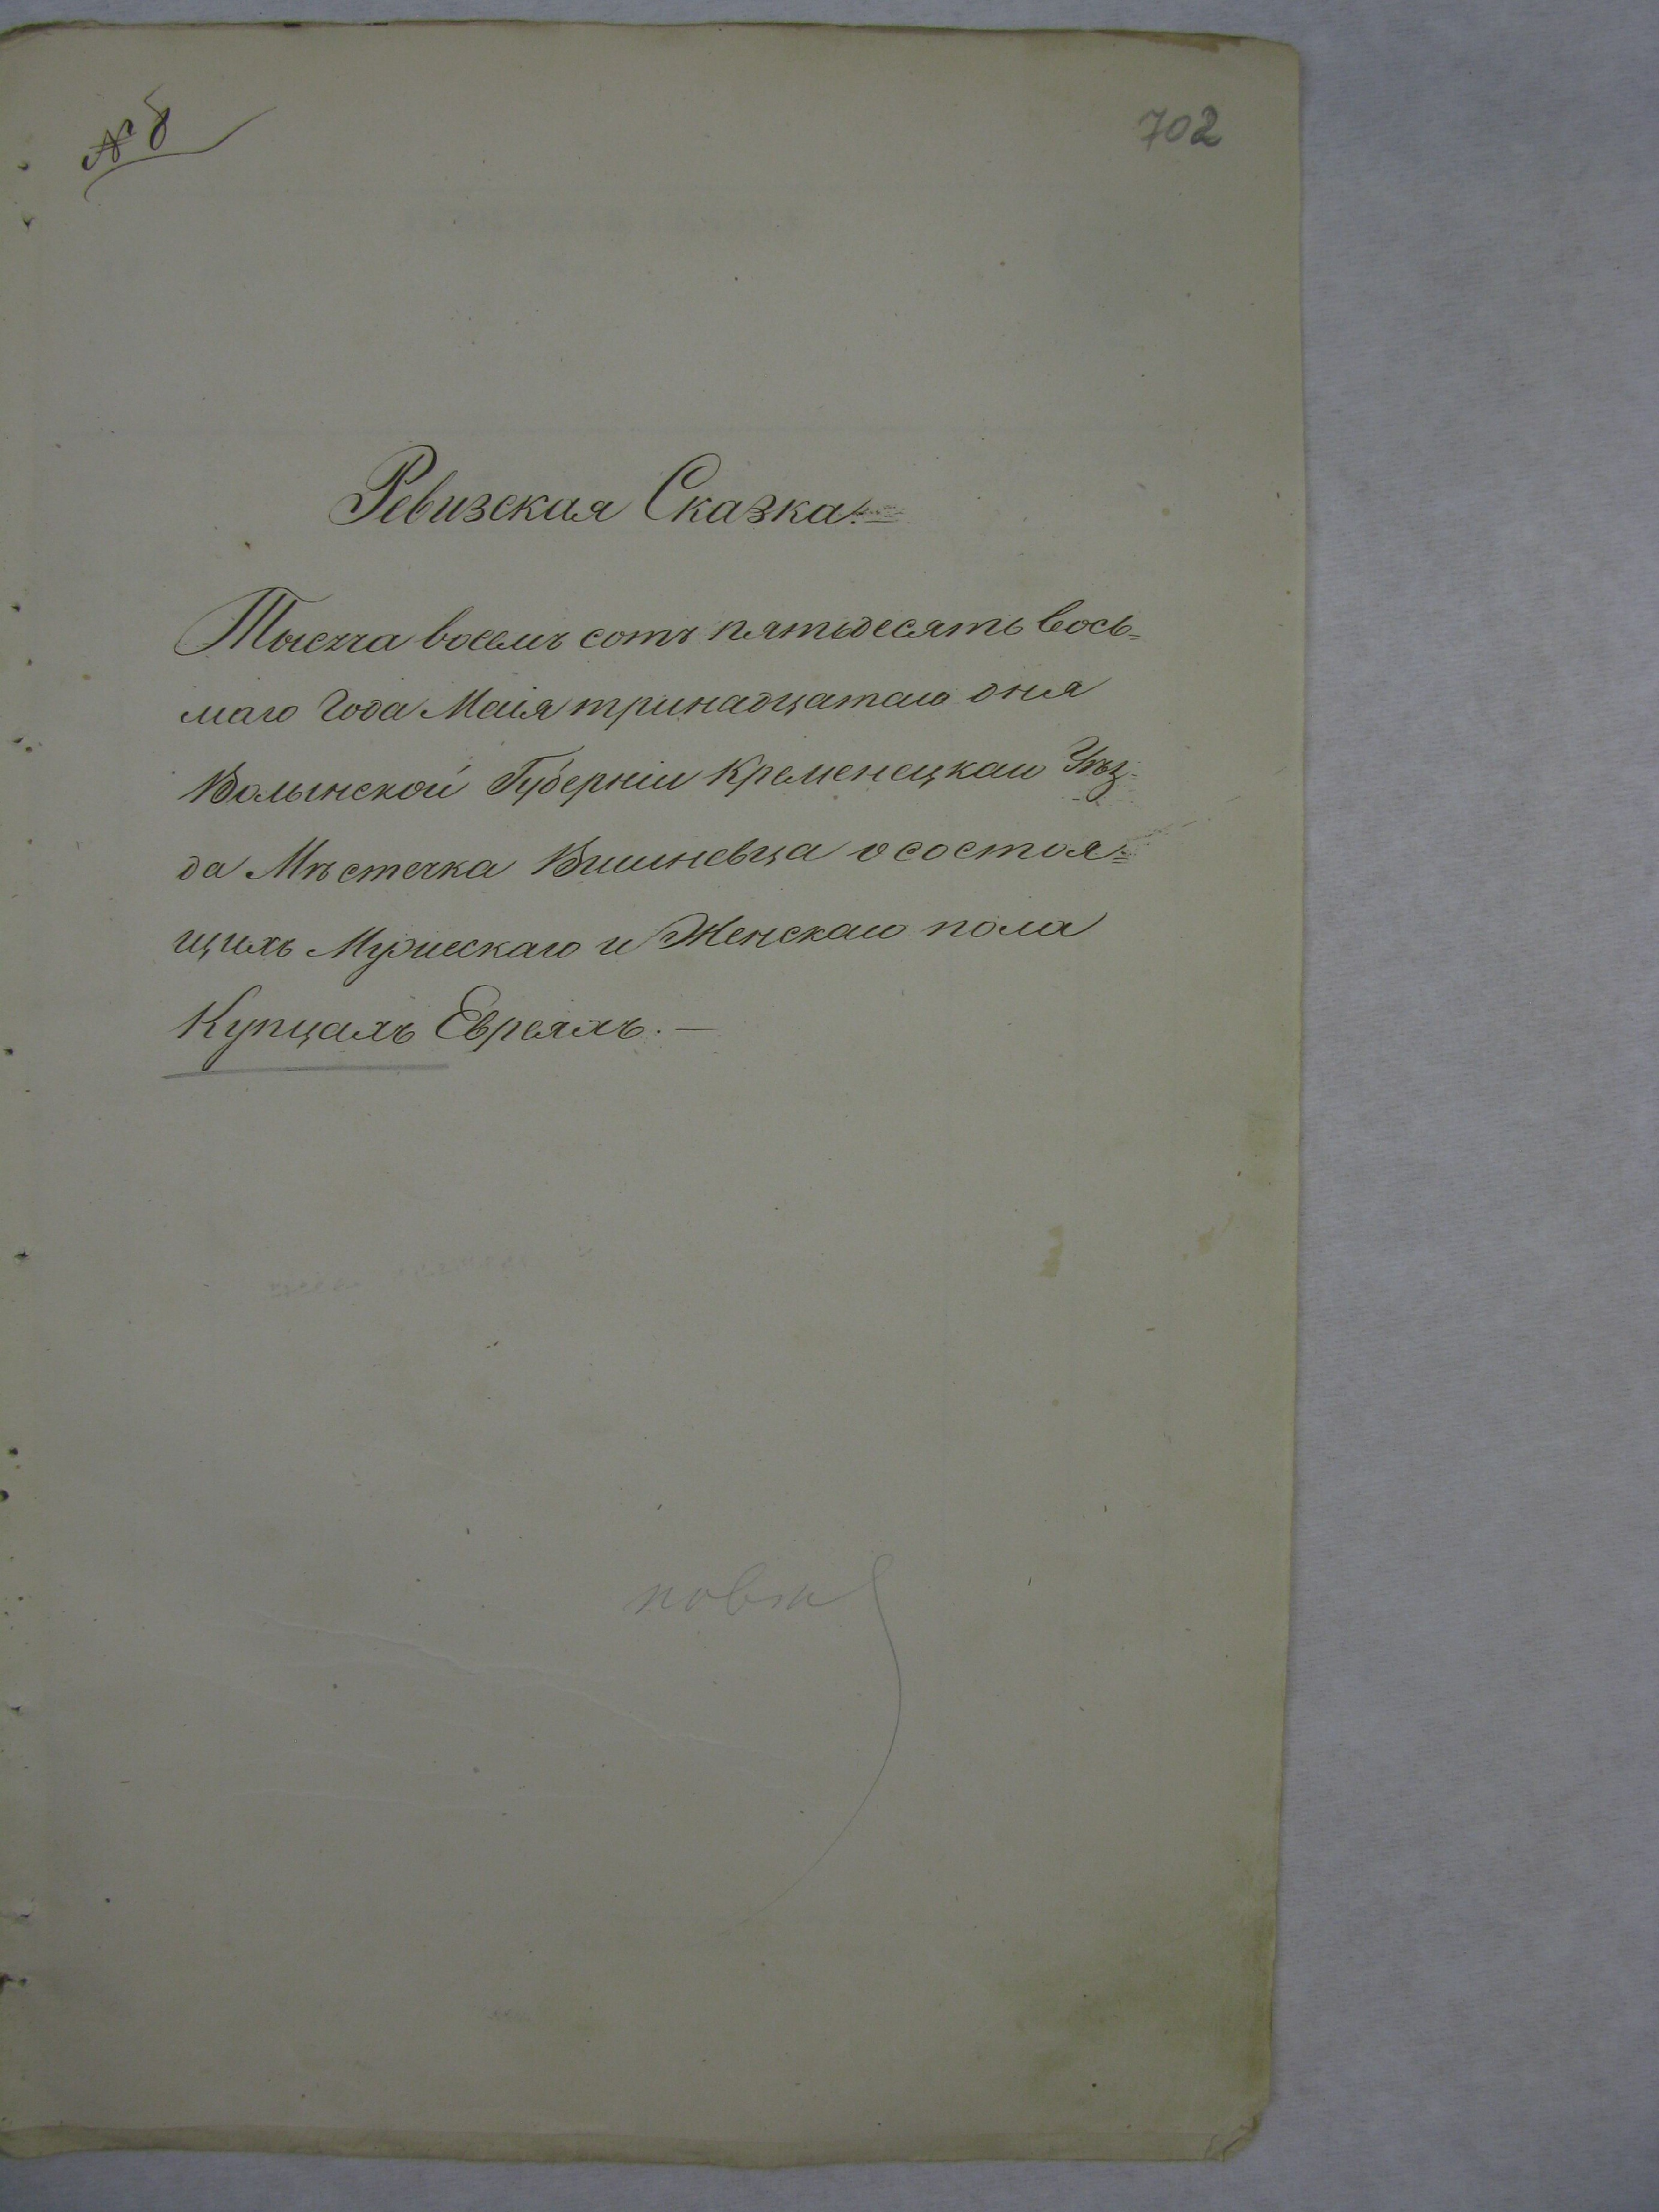 № 8
702
Ревизская Сказка.
Тысеча восемъ сотъ пятьдесятъ вось=
маго Года Маія тринадцатаго дня
Волынской Губерніи Кременецкаго Уѣз=
да Мѣстечка Вишневца о состоя=
щихъ Мужескаго и Женскаго пола
Купцахъ Евреяхъ. —